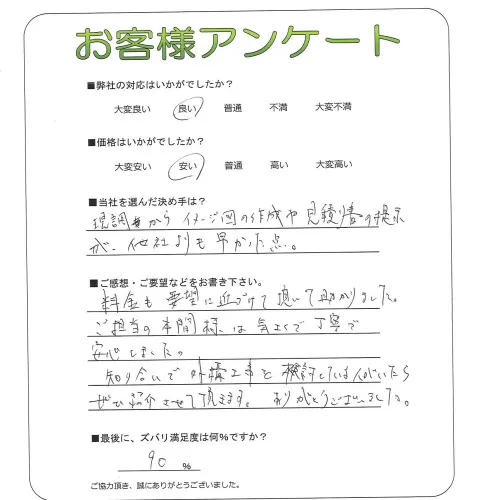 お客様アンケート
■弊社の対応はいかがでしたか？
大変良い 良い 普通 不満 大変不満
■価格はいかがでしたか？
大変安い 安い 普通 高い 大変高い
■当社を選んだ決め手は？
現調からイメージ図の作成や見積書の提示
が、他社よりも早かった点。
■ご感想・ご要望などをお書き下さい。
料金も要望に近づけて頂いて助かりました。
ご担当の本間様は気さくで丁寧で
安心しました。
知り合いで外構工事を検討している人がいたら
ぜひ紹介させて頂きます。ありがとうございました。
■最後に、ズバリ満足度は何%ですか？
90 %
ご協力頂き、誠にありがとうございました。